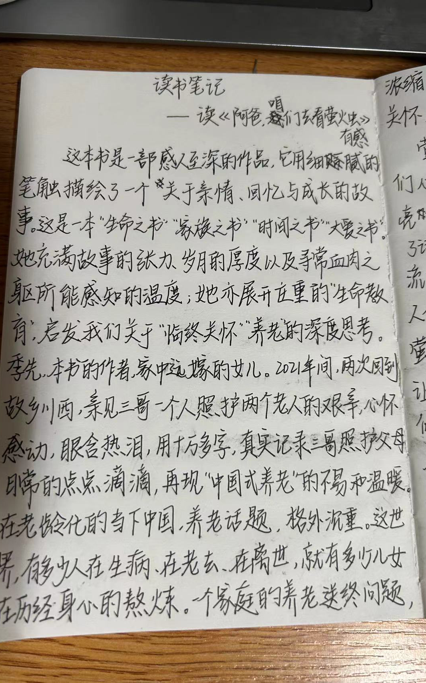 读书笔记
——读《阿爸,咱们去看萤火虫》
有感
这本书是一部感人至深的作品,它用细腻的
笔触描绘了一个关于亲情、回忆与成长的故
事。这是一本"生命之书""家族之书""时间之书""大爱之书"。
她充满故事的张力、岁月的厚度以及寻常血肉之
躯所能感知的温度;她亦展开庄重的"生命教
育",启发我们关于"临终关怀""养老"的深度思考。
季先,本书的作者,家中远嫁的女儿。2021年间,两次回到
故乡川西,亲见三哥一个人照护两个老人的艰辛,心怀
感动,眼含热泪,用十万多字,真实记录三哥照护父母
日常的点点滴滴,再现"中国式养老"的不易和温暖。
在老龄化的当下中国,养老话题,格外沉重。这世
界,有多少人在生病、在老去、在离世,就有多少儿女
在历经身心的熬炼。一个家庭的养老送终问题,
浓缩
关怀
们
亮
流
人
萤
让